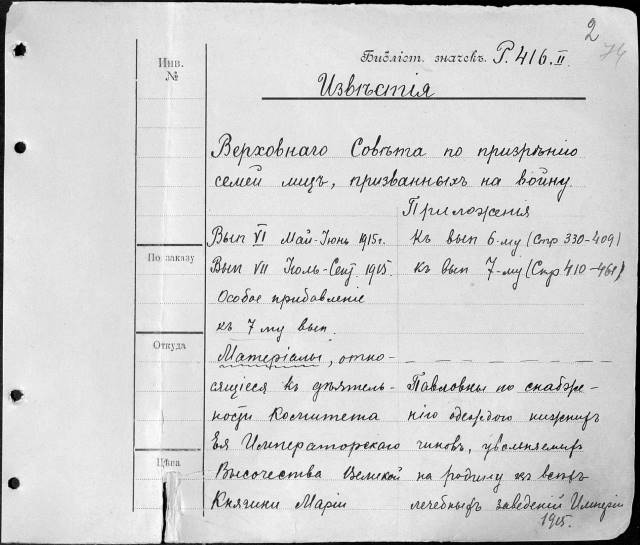 2
74
Инв.
№
Библіот. значекъ. Р. 416. II.
Извѣстія
Верховнаго Совѣта по призрѣнію
семей лицъ, призванныхъ на войну.
Приложенія
Вып VI Май-Іюнь 1915 г. къ вып 6-му (Стр 330-409)
По заказу
Вып VII Іюль-Сент. 1915. къ вып 7-му (Стр 410-461)
Особое прибавленіе
къ 7 му вып.
Откуда
Матеріалы, отно-
сящіеся къ дѣятель- Павловны по снабже-
ности Комитета нію одеждою нижнихъ
Ея Императорскаго чиновъ, увольняемыхъ
Цѣна
Высочества Великой на родину изъ всѣхъ
Княгини Маріи лечебныхъ заведеній Имперіи
1915.